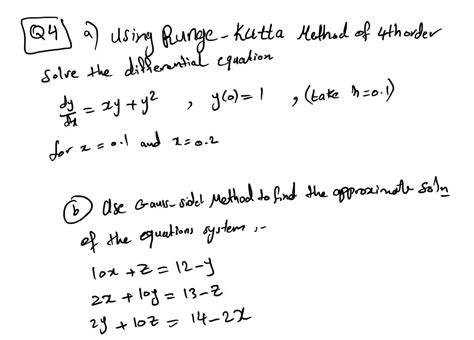 Q4 a) Using Runge-Kutta Method of 4th order
Solve the differential equation
dy/dx = xy + y² , y(0) = 1 , (take h = 0.1)
for x = 0.1 and x = 0.2
b) Use Gauss-sidel Method to find the approximate Soln
of the equations system :-
10x + z = 12 - y
2x + 10y = 13 - z
2y + 10z = 14 - 2x